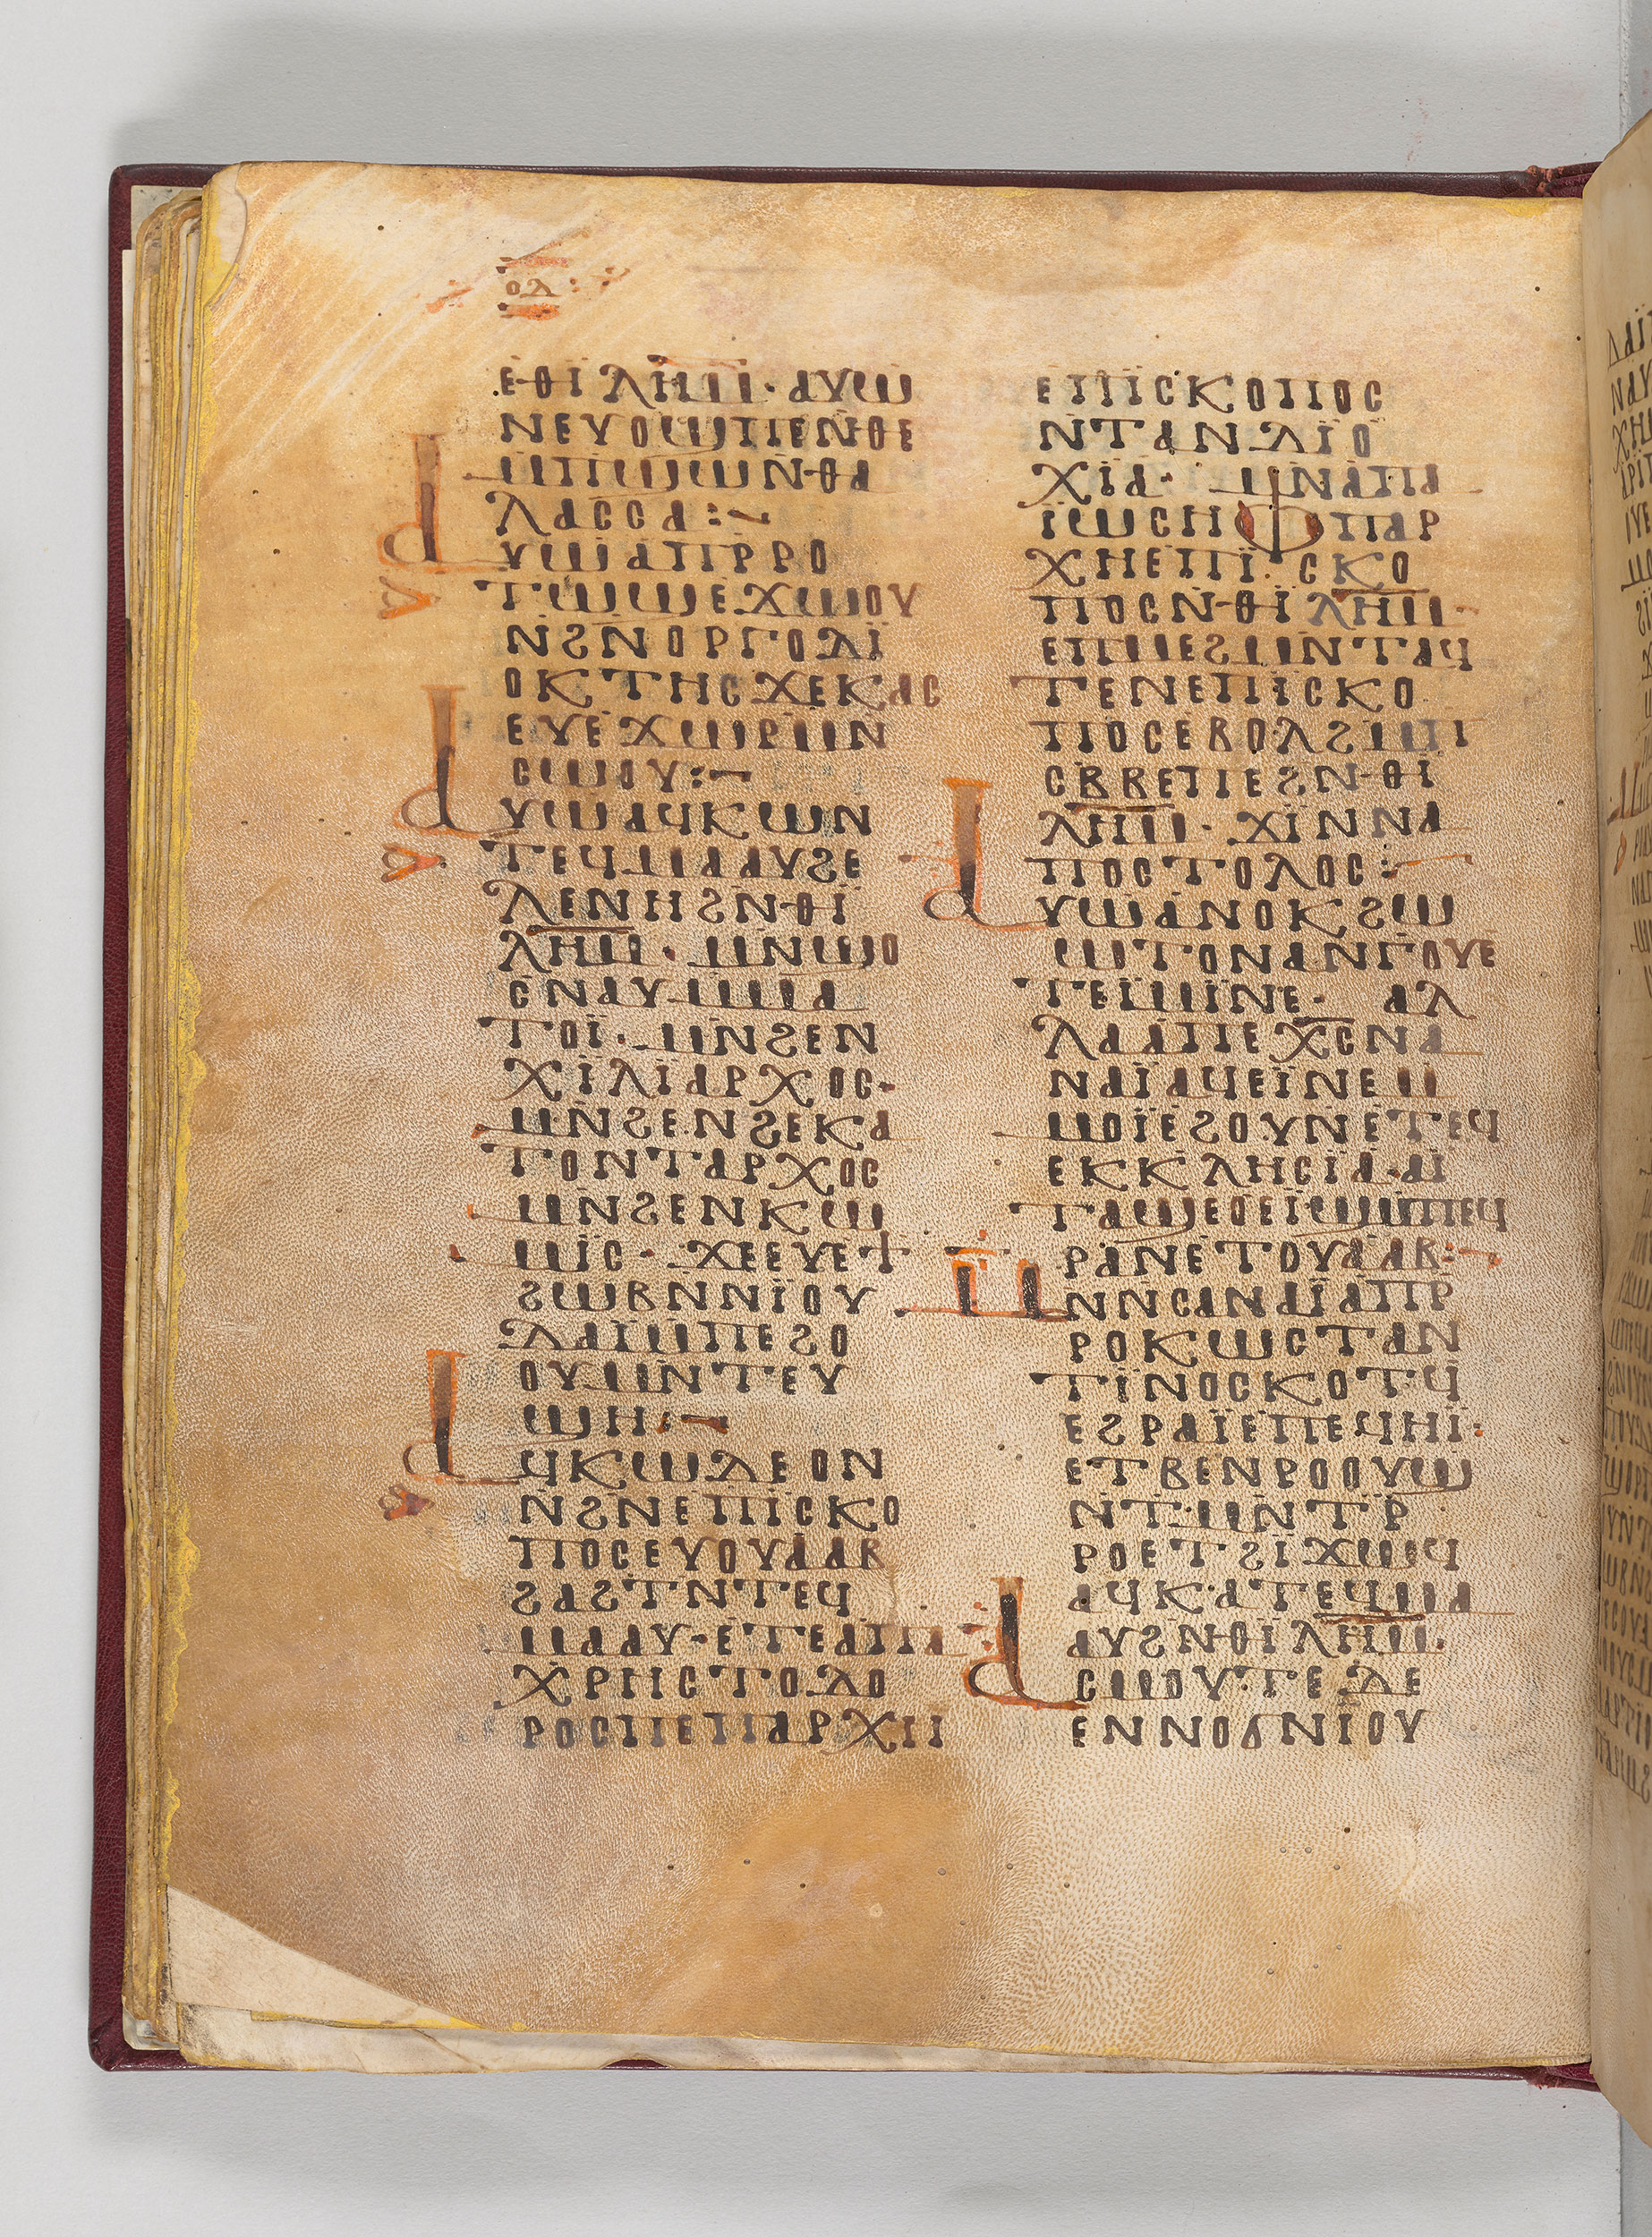 ⲟⲗ
ⲉⲑⲓⲗⲏⲙ· ⲁⲩⲱ
ⲛⲉⲩⲟϣⲡⲉⲛⲑⲉ
ⲙⲡϣⲱⲛⲑⲁ
ⲗⲁⲥⲥⲁ:~
ⲁⲩⲱⲁⲡⲣⲣⲟ
ⲧⲱϣⲉϫⲱⲟⲩ
ⲛϩⲛⲟⲣⲅⲟⲇⲓ
ⲟⲕⲧⲏⲥϫⲉⲕⲁⲥ
ⲉⲩⲉϫⲱⲣⲙⲛ
ⲥⲱⲟⲩ:~
ⲁⲩⲱⲁϥⲕⲱⲛ
ⲧⲉϥⲙⲁⲁⲩϩⲉ
ⲗⲉⲛⲏϩⲛⲑⲓ
ⲗⲏⲙ· ⲙⲛϣⲟ
ⲥⲛⲁⲩⲙⲙⲁ
ⲧⲟⲓ· ⲙⲛϩⲉⲛ
ⲭⲓⲗⲓⲁⲣⲭⲟⲥ·
ⲙⲛϩⲉⲛϩⲉⲕⲁ
ⲧⲟⲛⲧⲁⲣⲭⲟⲥ
ⲙⲛϩⲉⲛⲕⲱ
ⲙⲓⲥ· ϫⲉⲉⲩⲉϯ
ϩⲱⲃⲛⲛⲓⲟⲩ
ⲇⲁⲓⲙⲡⲉϩⲟ
ⲟⲩⲙⲛⲧⲉⲩ
ϣⲏ:~
ⲁϥⲕⲱⲇⲉⲟⲛ
ⲛϩⲛⲉⲡⲓⲥⲕⲟ
ⲡⲟⲥⲉⲩⲟⲩⲁⲁⲃ
ϩⲁϩⲧⲛⲧⲉϥ
ⲙⲁⲁⲩ·ⲉⲧⲉⲁⲡⲁ
ⲭⲣⲏⲥⲧⲟⲇⲟ
ⲣⲟⲥⲡⲉⲡⲁⲣⲭⲏ
ⲉⲡⲓⲥⲕⲟⲡⲟⲥ
ⲛⲧⲁⲛⲇⲓⲟ
ⲭⲓⲁ· ⲙⲛⲁⲡⲁ
ⲓⲱⲥⲏⲫⲡⲁⲣ
ⲭⲏⲉⲡⲓⲥⲕⲟ
ⲡⲟⲥⲛⲑⲓⲗⲏⲙ·
ⲉⲡⲙⲉϩⲙⲛⲧⲁϥ
ⲧⲉⲛⲉⲡⲓⲥⲕⲟ
ⲡⲟⲥⲉⲃⲟⲗϩⲙⲡ
ⲥⲃⲃⲉⲡⲉϩⲛⲑⲓ
ⲗⲏⲙ· ϫⲓⲛⲛⲁ
ⲡⲟⲥⲧⲟⲗⲟⲥ:~
ⲁⲩⲱⲁⲛⲟⲕϩⲱ
ⲱⲧⲟⲛⲁⲛⲅⲟⲩⲉ
ⲧⲉⲓⲙⲓⲛⲉ· ⲁⲗ
ⲗⲁⲁⲡⲉⲭⲥⲛⲁ
ⲛⲁⲓⲁϥⲉⲓⲛⲉⲙ
ⲙⲟⲓⲉϩⲟⲩⲛⲉⲧⲉϥ
ⲉⲕⲕⲗⲏⲥⲓⲁ·ⲁⲓ
ⲧⲁϣⲉⲟⲉⲓϣⲙⲡⲉϥ
ⲣⲁⲛⲉⲧⲟⲩⲁⲁⲃ:~
ⲙⲛⲛⲥⲁⲛⲁⲓⲁⲡⲣ
ⲣⲟⲕⲱⲥⲧⲁⲛ
ⲧⲓⲛⲟⲥⲕⲟⲧϥ
ⲉϩⲣⲁⲓⲉⲡⲉϥⲏⲓ:
ⲉⲧⲃⲉⲛⲣⲟⲟⲩϣ
ⲛⲧⲙⲛⲧⲣ
ⲣⲟⲉⲧϩⲓϫⲱϥ
ⲁϥⲕⲁⲧⲉϥⲙⲁ
ⲁⲩϩⲛⲑⲓⲗⲏⲙ·
ⲁⲥⲙⲟⲩⲧⲉⲇⲉ
ⲉⲛⲛⲟϭⲛⲓⲟⲩ